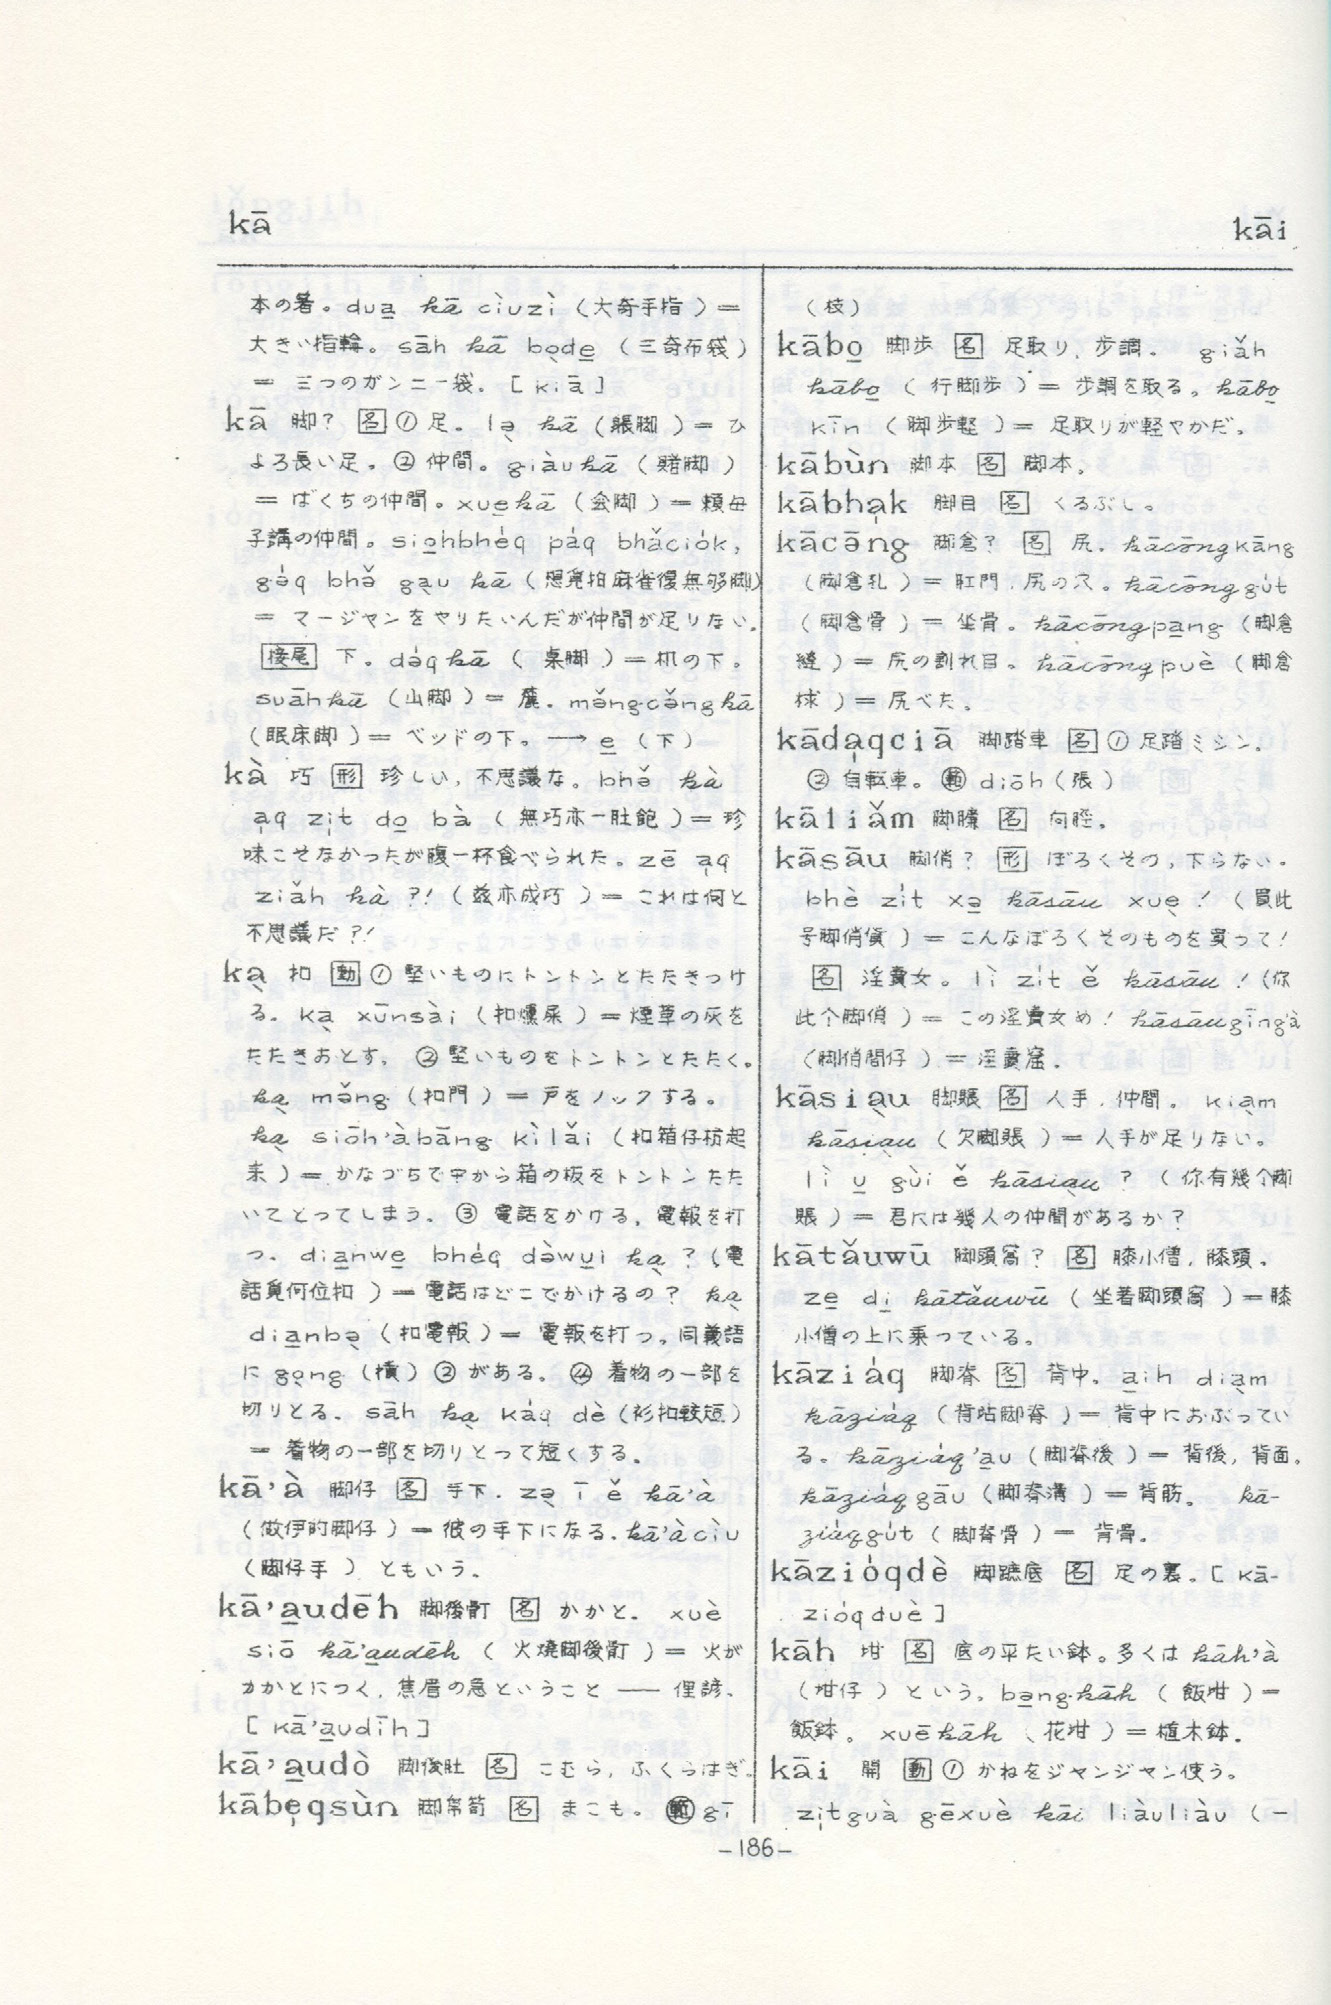 kā
kāi
本の箸。dua̱ kā cìuzì（大奇手指）＝
大きい指輪。sāh kā bo̱de̱（三奇布袋）
＝ 三つのガンニー袋。[kiā]
kā 脚？ [名] ① 足。lə̱ kā（ 脚）＝ ひ
よろ長い足。② 仲間。giàukā（賭脚）
＝ ばくちの仲間。xue̱kā（会脚）＝ 頼母
子講の仲間。sio̱hbhéq páq bhǎciók,
gə́q bhə̌ gạu kā（想覓拍麻雀復無够脚）
＝ マージャンをやりたいんだが仲間が足りない。
[接尾] 下。də́qkā（桌脚）＝ 机の下。
suāhkā（山脚）＝ 麓。mǎngcǎngkā
（眠床脚）＝ ベッドの下。→ e̱（下）
kà 巧 [形] 珍しい，不思議な。bhə̌ kà
ạq zịt do̱ bà（無巧亦一肚飽）＝ 珍
味こそなかったが腹一杯食べられた。zē ạq
ziǎh kà ?!（兹亦成巧）＝ これは何と
不思議だ?!
kạ 扣 [動] ① 堅いものにトントンとたたきつけ
る。kạ xūnsài（扣燻屎）＝ 煙草の灰を
たたきおとす。② 堅いものをトントンとたたく。
kạ mǎng（扣門）＝ 戸をノックする。
kạ siōh'àbāng kìlǎi（扣箱仔枋起
来）＝ かなづちで中から箱の板をトントンたた
いてとってしまう。③ 電話をかける，電報を打
つ。dia̱nwe̱ bhéq də̀wu̱i kạ ?（電
話覓何位扣）＝ 電話はどこでかけるの？ kạ
dia̱nbə̱（扣電報）＝ 電報を打つ。同義語
に gọng（摃）②がある。④ 着物の一部を
切りとる。sāh kạ káq dè（衫扣較短）
＝ 着物の一部を切りとって短くする。
kā'à 脚仔 [名] 手下。zə̱ ī ě kā'à
（做伊的脚仔）＝ 彼の手下になる。kā'àcìu
（脚仔手）ともいう。
kā'a̱udēh 脚後 [名] かかと。xuè
siō kā'a̱udēh（火燒脚後 ）＝ 火が
かかとにつく，焦眉の急ということ —— 俚諺。
[kā'a̱udīh]
kā'a̱udò 脚後肚 [名] こむら，ふくらはぎ。
kābẹqsùn 脚帛筍 [名] まこも。 gī
（枝）
kābo̱ 脚歩 [名] 足取り，歩調。giǎh
kābo̱（行脚歩）＝ 歩調を取る。kābo̱
kīn（脚歩軽）＝ 足取りが軽やかだ。
kābùn 脚本 [名] 脚本。
kābhạk 脚目 [名] くるぶし。
kācōng 脚倉？ [名] 尻。kācōngkāng
（脚倉孔）＝ 肛門，尻の穴。kācōnggút
（脚倉骨）＝ 坐骨。kācōngpa̱ng（脚倉
縫）＝ 尻の割れ目。kācōngpuè（脚倉
 ）＝ 尻べた。
kādạqciā 脚踏車 [名] ① 足踏ミシン。
② 自転車。 diōh（張）
kāliǎm 脚臁 [名] 向脛。
kāsāu 脚俏？ [形] ぼろくその，下らない。
bhè zít xə̱ kāsāu xue̱ !（買此
号脚俏貨）＝ こんなぼろくそのものを買って！
[名] 淫賣女。lì zít ě kāsāu !（你
此个脚俏）＝ この淫賣女め！ kāsāugīng'à
（脚俏間仔）＝ 淫賣窟。
kāsiạu 脚賬 [名] 人手，仲間。kiạm
kāsiạu（欠脚賬）＝ 人手が足りない。
lì u̱ gùi ě kāsiạu ?（你有幾个脚
賬）＝ 君には幾人の仲間があるか？
kātǎuwū 脚頭窩？ [名] 膝小僧，膝頭。
ze̱ di̱ kātǎuwū（坐著脚頭窩）＝ 膝
小僧の上に乗っている。
kāziáq 脚脊 [名] 背中。a̱ih diạm
kāziáq（背站脚脊）＝ 背中におぶってい
る。kāziáq'a̱u（脚脊後）＝ 背後，背面。
kāziáqgāu（脚脊溝）＝ 背筋。kā-
ziáqgút（脚脊骨）＝ 背骨。
kāzióqdè 脚蹠底 [名] 足の裏。[kā-
zióqduè]
kāh 坩 [名] 底の平たい鉢。多くは kāh'à
（坩仔）という。ba̱ngkāh（飯坩）＝
飯鉢。xuēkāh（花坩）＝ 植木鉢。
kāi 開 [動] ① かねをジャンジャン使う。
zịtguà gēxuè kāi liàuliàu（一
-186-